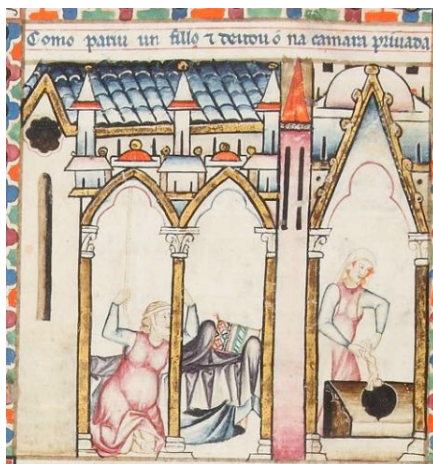 Como pariu un fillo ⁊ deitou ó na camara priuada